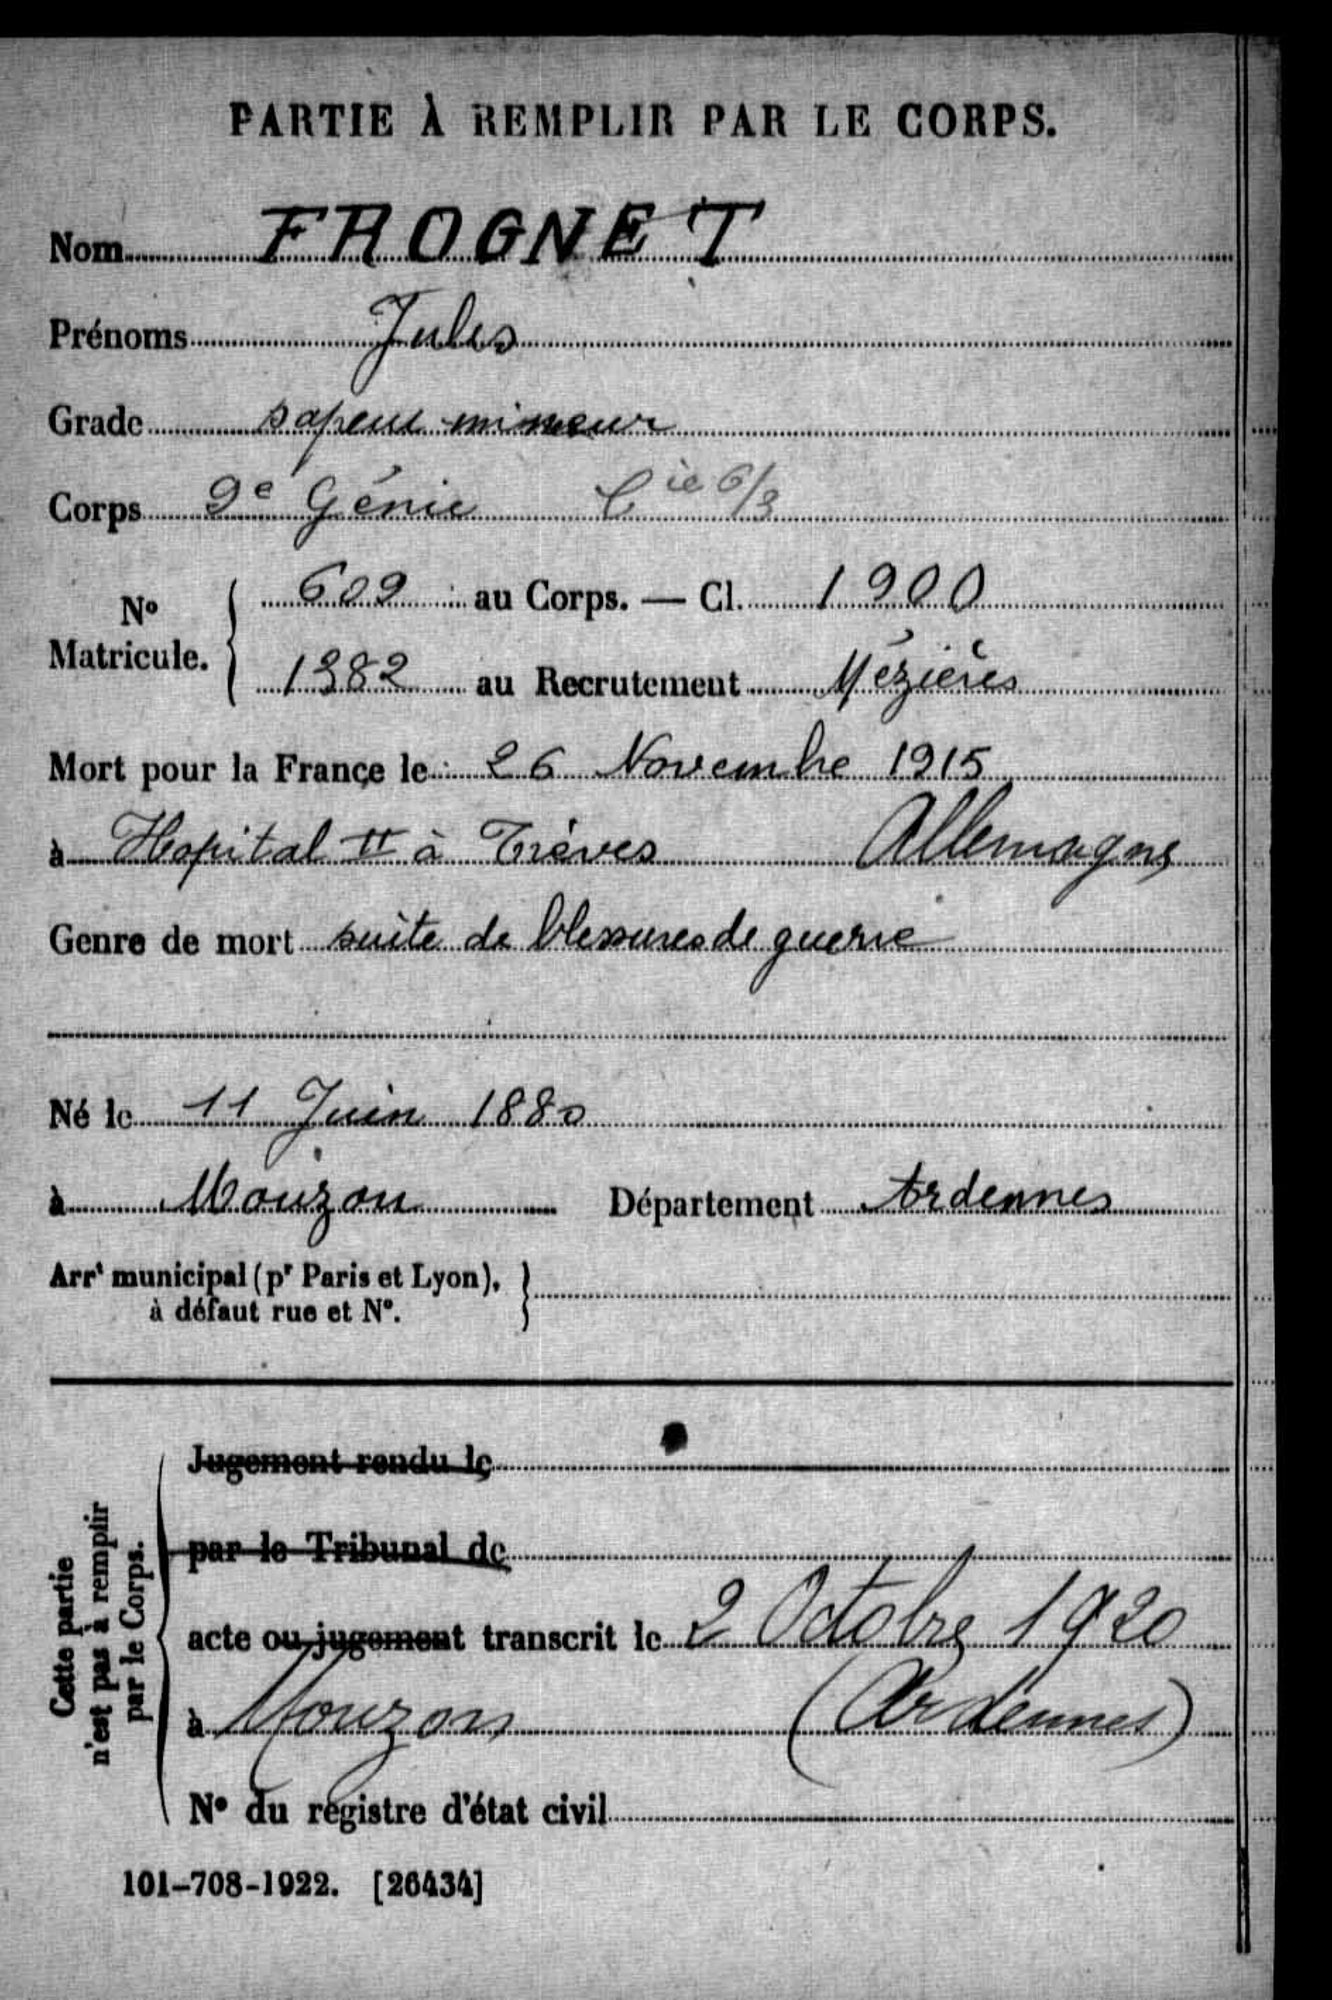 PARTIE À REMPLIR PAR LE CORPS.
Nom FROGNET
Prénoms Jules
Grade sapeur mineur
Corps 9e Génie Cie 6/3
No Matricule. { 609 au Corps. — Cl. 1900
1382 au Recrutement Mézières
Mort pour la France le 26 Novembre 1915
à Hopital II à Trèves Allemagne
Genre de mort suite de blessures de guerre
Né le 11 Juin 1880
à Mouzon Département Ardennes
Arrt municipal (pr Paris et Lyon), à défaut rue et No. }
Cette partie n'est pas à remplir par le Corps.
Jugement rendu le
par le Tribunal de
acte ou jugement transcrit le 2 Octobre 1920
à Mouzon (Ardennes)
No du registre d'état civil
101-708-1922. [26434]